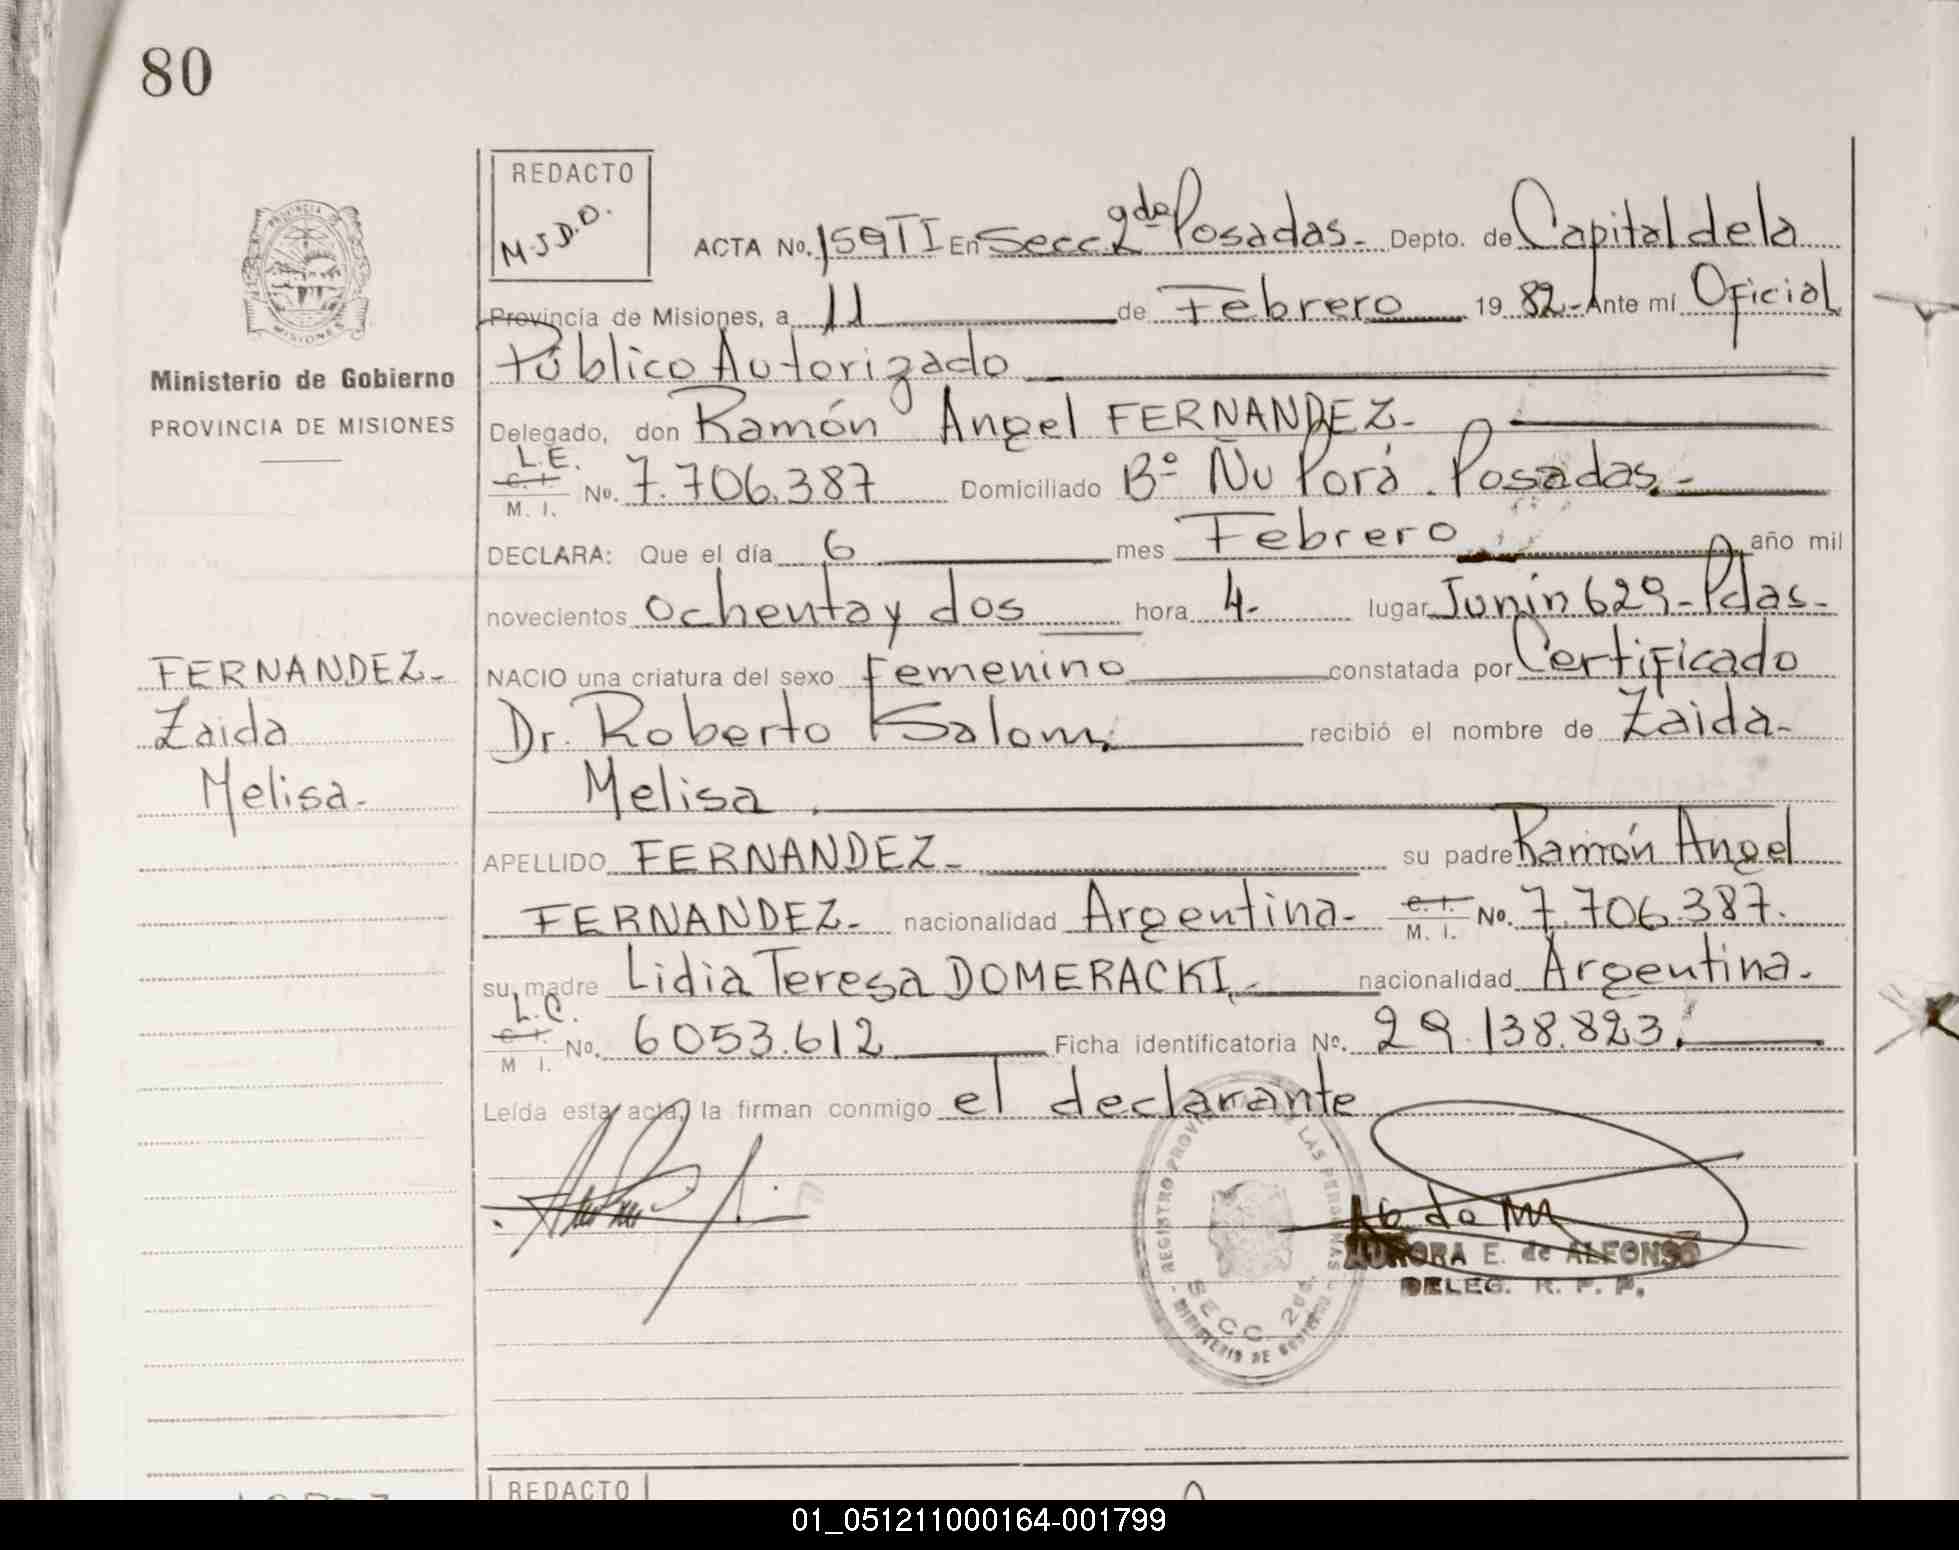 80
REDACTO
M.J.D.O.
ACTA No. 159TI En Secc. 2da Posadas.- Depto. de Capital de la
Provincia de Misiones, a 11 de Febrero 1982.- Ante mí Oficial
Público Autorizado
Delegado, don Ramón Angel FERNANDEZ.-
L.E.
C. I.
M. I.
No. 7.706.387 Domiciliado B° Ñu Porá. Posadas.-
DECLARA: Que el día 6 mes Febrero año mil
novecientos ochenta y dos hora 4.- lugar Junin 629-Pdas.-
NACIO una criatura del sexo Femenino constatada por Certificado
Dr. Roberto Salom. recibió el nombre de Zaida-
Melisa.
APELLIDO FERNANDEZ.- su padre Ramón Angel
FERNANDEZ.- nacionalidad Argentina.- C. I. M. I. No. 7.706.387.
su madre Lidia Teresa DOMERACKI.- nacionalidad Argentina.-
L.C.
C. I.
M I.
No. 6053.612 Ficha identificatoria No. 29.138.823.
Leída esta acta, la firman conmigo el declarante
PROVINCIA DE
MISIONES
Ministerio de Gobierno
PROVINCIA DE MISIONES
FERNANDEZ.-
Zaida
Melisa.-
REGISTRO PROV DE LAS PERSONAS
SECC. 2da.
MINISTERIO DE GOBIERNO
AURORA E. de ALFONSO
DELEG. R. P. P.
REDACTO
01_051211000164-001799